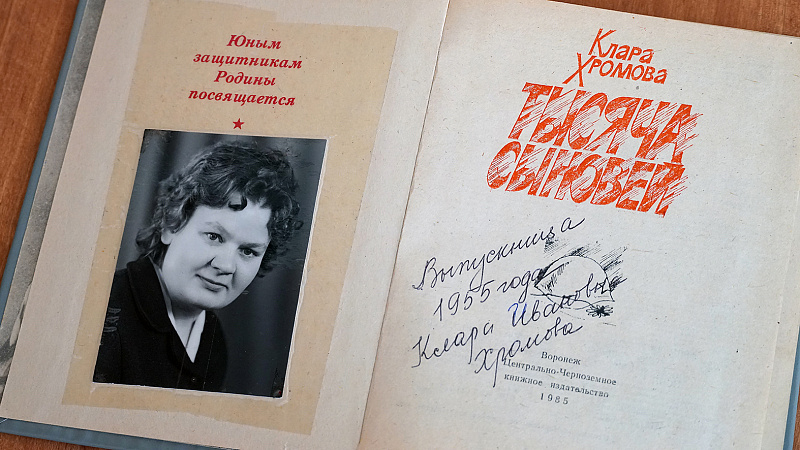 Юным
защитникам
Родины
посвящается
Клара
Хромова
ТЫСЯЧА
СЫНОВЕЙ
Выпускница
1955 года
Клара Ивановна
Хромова
Воронеж
Центрально-Черноземное
книжное издательство
1985